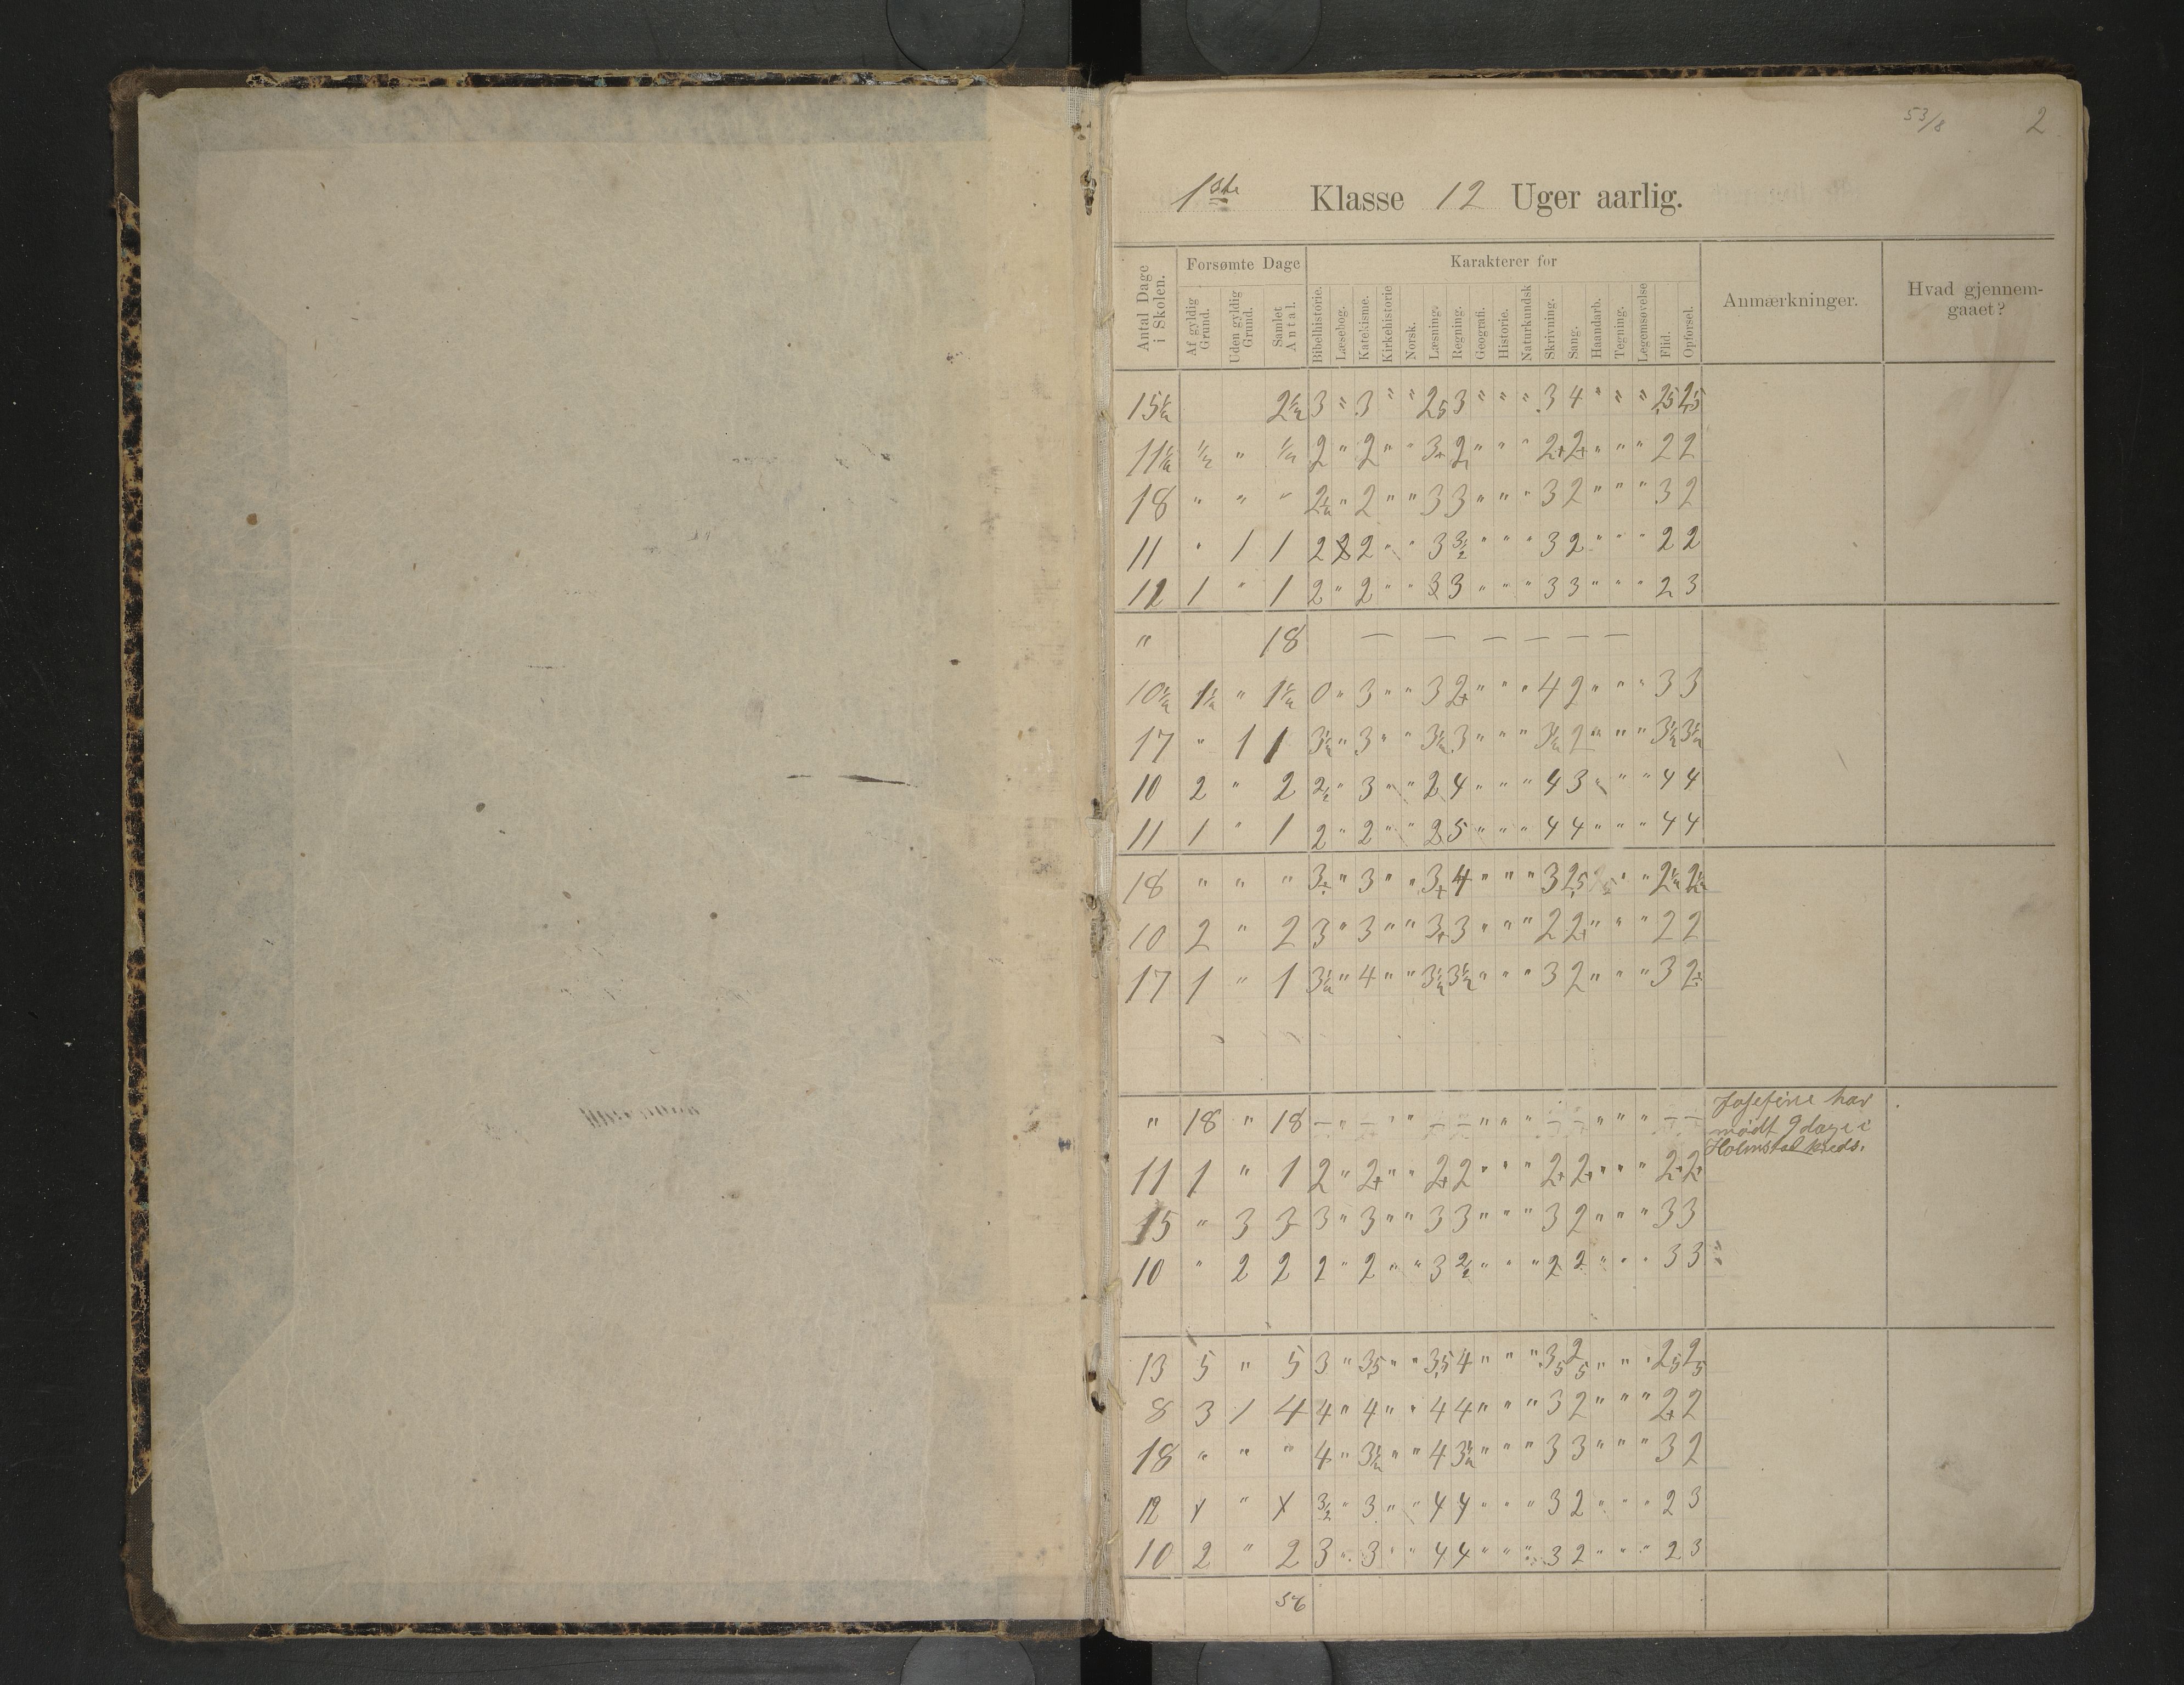 53/8 2
1ste Klasse 12 Uger aarlig.
Antal Dage i Skolen. Forsømte Dage Karakterer for Anmærkninger. Hvad gjennemgaaet?
Af gyldig Grund. Uden gyldig Grund. Samlet Antal. Bibelhistorie. Læsebog. Katekisme. Kirkehistorie Norsk. Læsning. Regning. Geografi. Historie. Naturkundsk Skrivning. Sang. Haandarb. Tegning. Legemsøvelse Flid. Opførsel.
15½ 2½ 3 " 3 " " 2,5 3 " " " 3 4 " " " 2,5 2,5
11½ ½ " ½ 2 " 2 " " 3+ 2 " " " 2+ 2+ " " " 2 2
18 " " " 2½ " 2 " " 3 3 " " " 3 2 " " " 3 2
11 " 1 1 2 2 " " 3 3½ " " " 3 2 " " " 2 2
12 1 " 1 2 " 2 " " 3 3 " " " 3 3 " " " 2 3
" 18 — — — — — —
10½ 1½ " 1½ 0 " 3 " " 3 2+ " " " 4 2 " " " 3 3
17 " 1 1 3½ " 3 " " 3½ 3 " " " 3½ 2 " " " 3½ 3½
10 2 " 2 2½ " 3 " " 2 4 " " " 4 3 " " " 4 4
11 1 " 1 2 " 2 " " 2 5 " " " 4 4 " " " 4 4
18 " " " 3+ " 3 " " 3+ 4 " " " 3 2,5 " " 2½ 2½
10 2 " 2 3 " 3 " " 3+ 3 " " " 2 2+ " " " 2 2
17 1 " 1 3½ " 4 " " 3½ 3½ " " " 3 2 " " " 3 2+
" 18 " 18 — " — " " — — " " " — — " " " — — Josefine har
mødt 9 dage i
Holmstad kreds.
11 1 " 1 2 " 2+ " " 2+ 2 " " " 2+ 2+ " " " 2+ 2+
15 " 3 3 3 " 3 " " 3 3 " " " 3 2 " " " 3 3
10 " 2 2 2 " 2 " " 3 2½ " " " 2 2 " " " 3 3
13 5 " 5 3 " 3,5 " " 3,5 4 " " " 3,5 2,5 " " " 2,5 2,5
8 3 1 4 4 " 4 " " 4 4 " " " 3 2 " " " 2+ 2
18 " " " 4 " 3½ " " 4 3½ " " " 3 3 " " " 3 2
12 " 3½ " 3 " " 4 4 " " " 3 2 " " " 2 3
10 2 " 2 3 " 3 " " 4 4 " " " 3 2 " " " 2 3